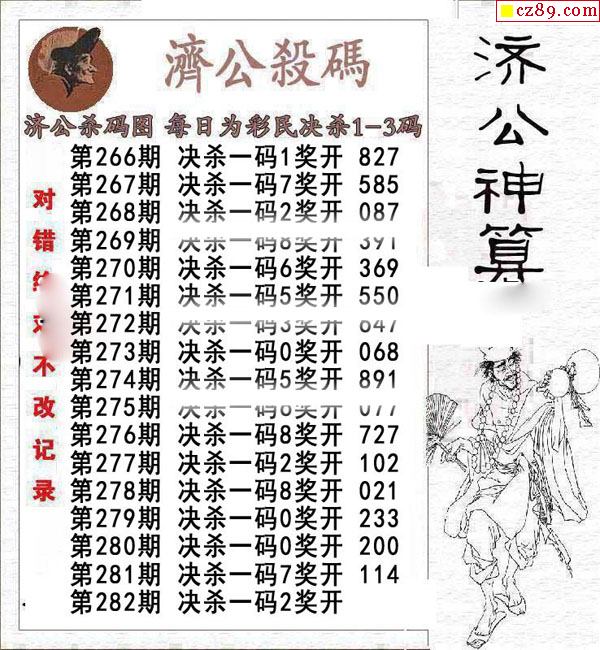 cz89.com
濟公殺碼
济公杀码图 每日为彩民决杀1-3码
第266期 决杀一码1奖开 827
第267期 决杀一码7奖开 585
第268期 决杀一码2奖开 087
第269期 决杀一码8奖开 391
第270期 决杀一码6奖开 369
第271期 决杀一码5奖开 550
第272期 决杀一码3奖开 647
第273期 决杀一码0奖开 068
第274期 决杀一码5奖开 891
第275期 决杀一码6奖开 077
第276期 决杀一码8奖开 727
第277期 决杀一码2奖开 102
第278期 决杀一码8奖开 021
第279期 决杀一码0奖开 233
第280期 决杀一码0奖开 200
第281期 决杀一码7奖开 114
第282期 决杀一码2奖开
对错 不改记录
济公神算